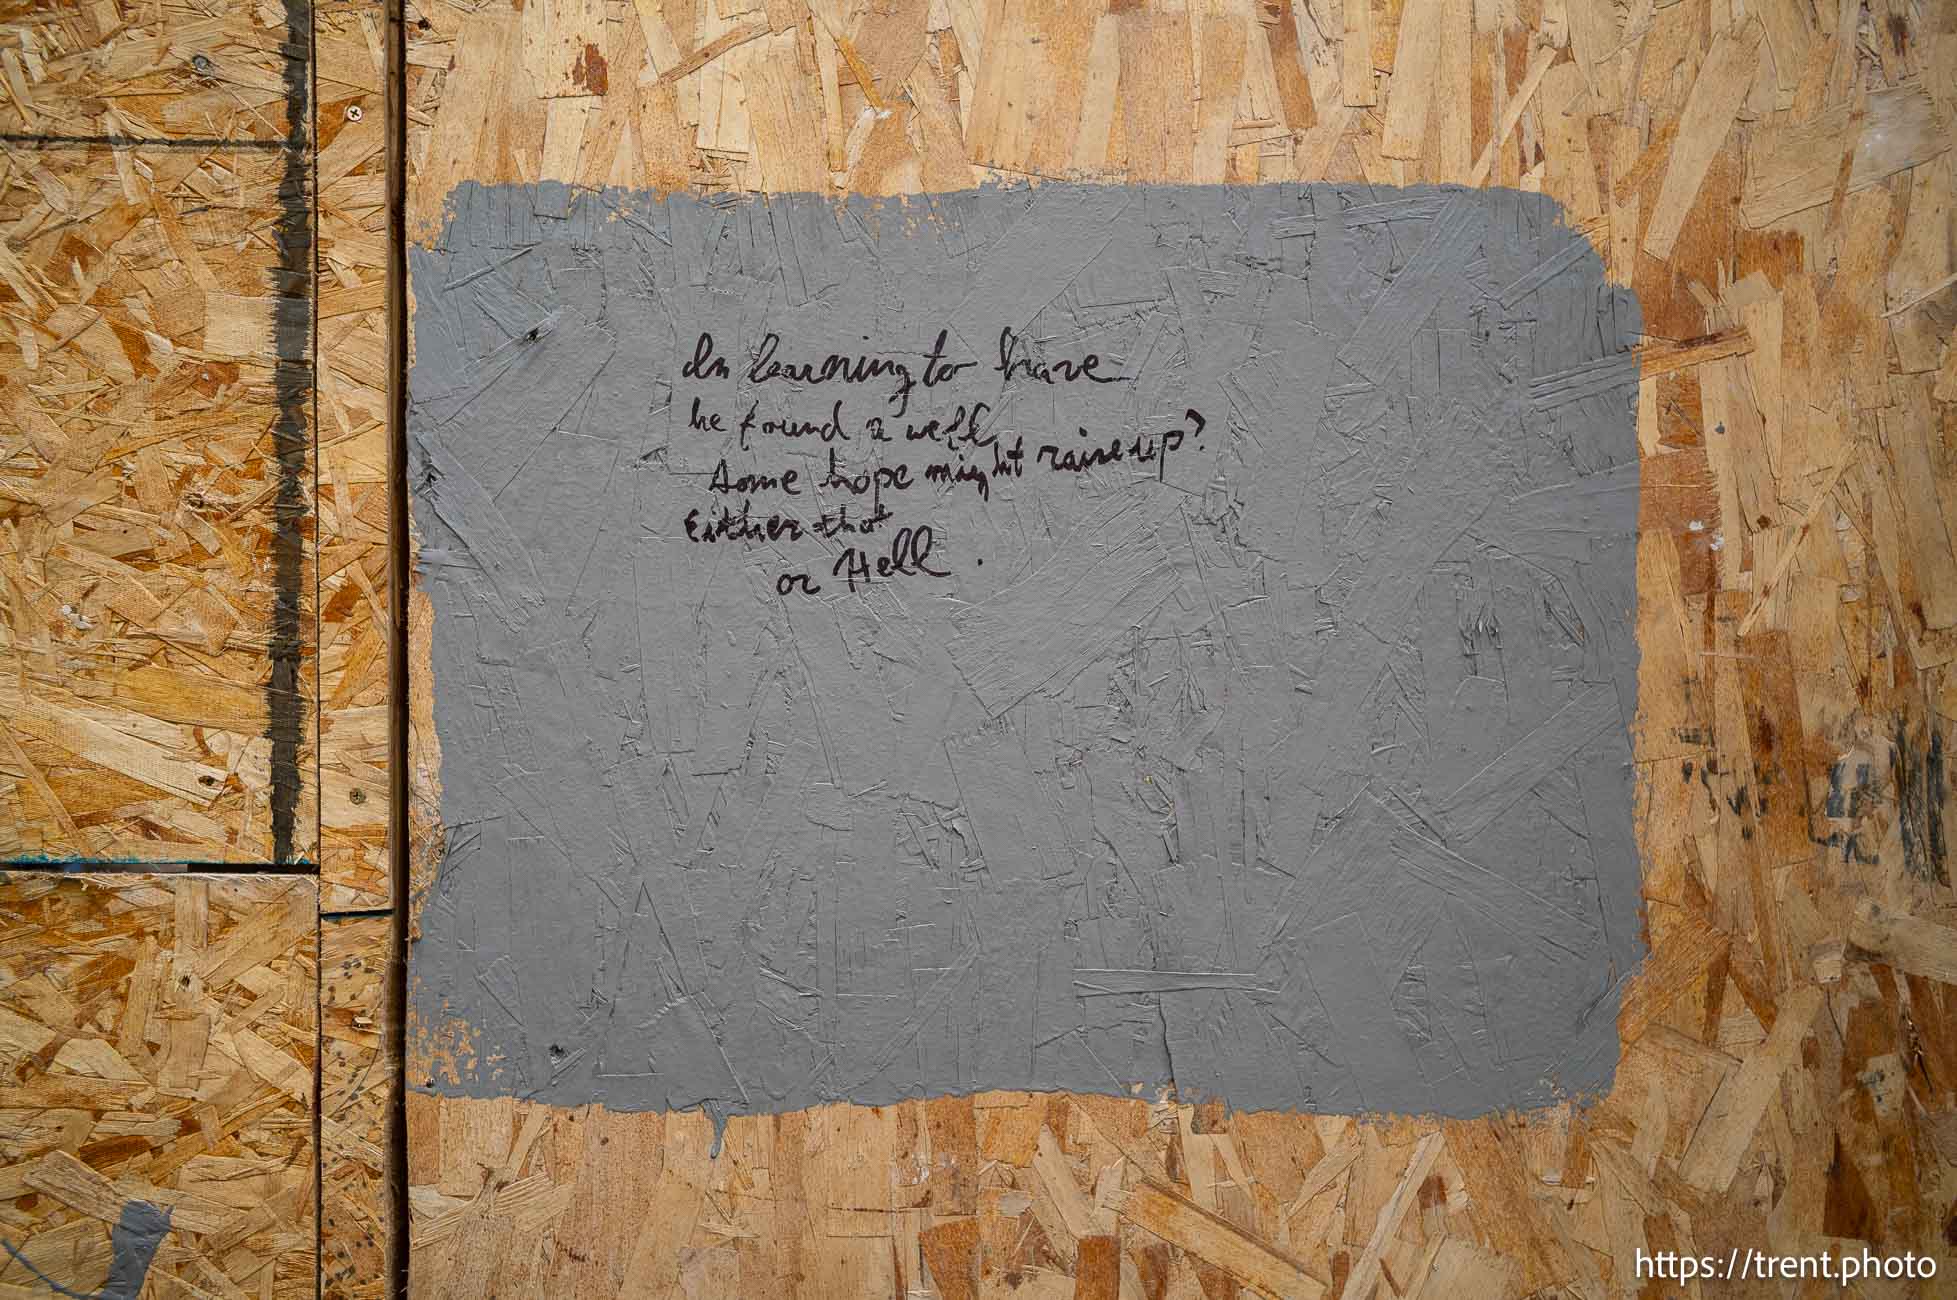 In learning to have
he found a well
Some hope might raise up?
Either that
or Hell.
https://trent.photo